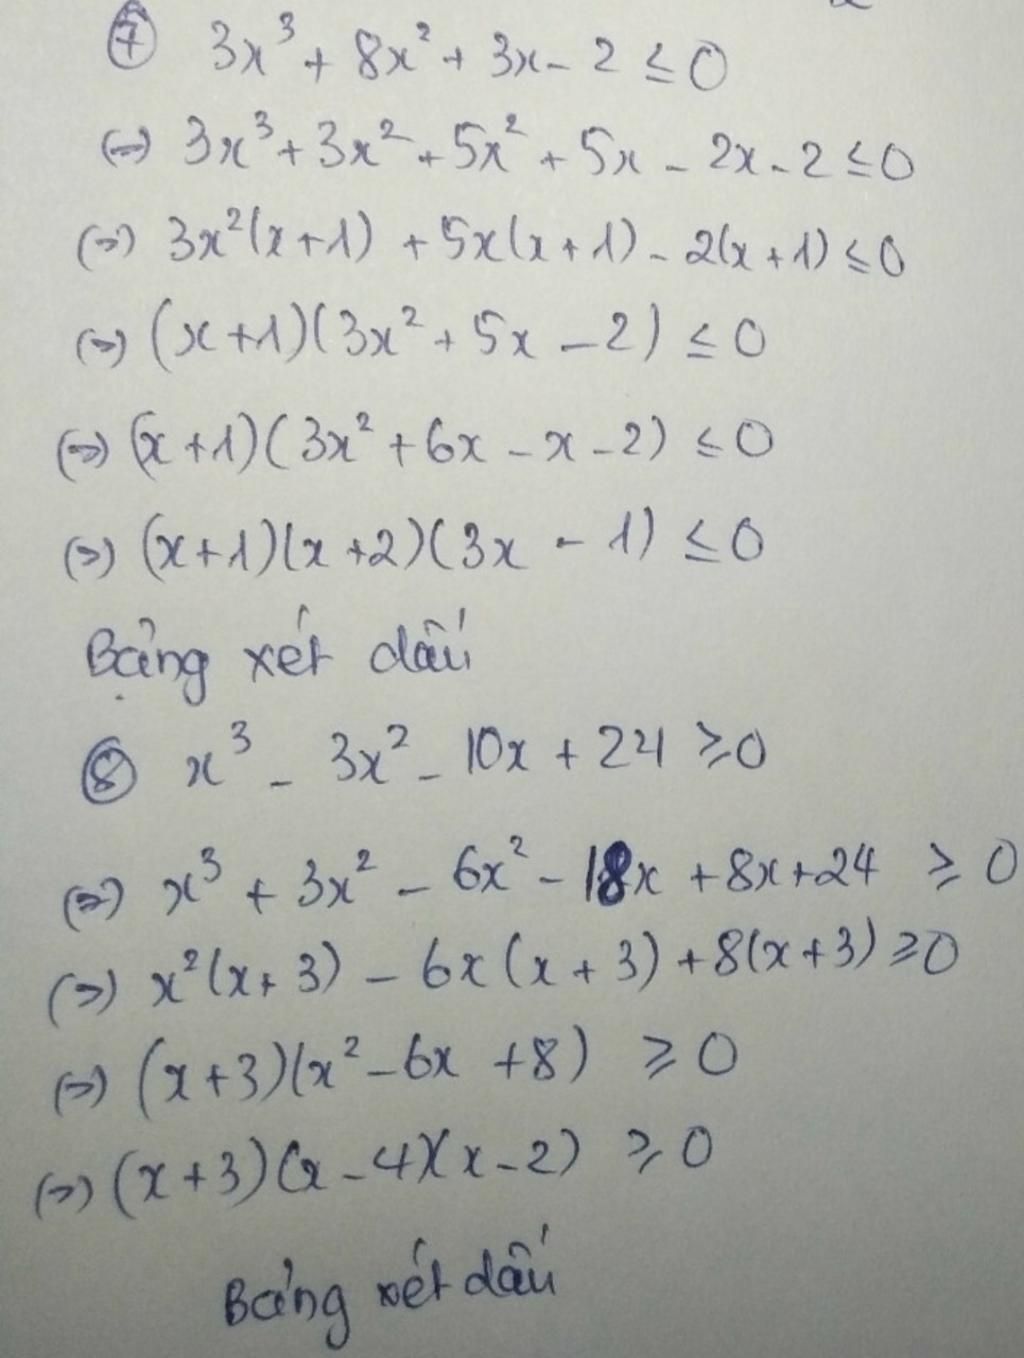 ⑦ 3x³ + 8x² + 3x - 2 ≤ 0
(=) 3x³ + 3x² + 5x² + 5x - 2x - 2 ≤ 0
(=) 3x²(x+1) + 5x(x+1) - 2(x+1) ≤ 0
(=) (x+1)(3x² + 5x - 2) ≤ 0
(=) (x+1)(3x² + 6x - x - 2) ≤ 0
(=) (x+1)(x+2)(3x - 1) ≤ 0
Bảng xét dấu
⑧ x³ - 3x² - 10x + 24 ≥ 0
(=) x³ + 3x² - 6x² - 18x + 8x + 24 ≥ 0
(=) x²(x+3) - 6x(x+3) + 8(x+3) ≥ 0
(=) (x+3)(x² - 6x + 8) ≥ 0
(=) (x+3)(x-4)(x-2) ≥ 0
Bảng xét dấu